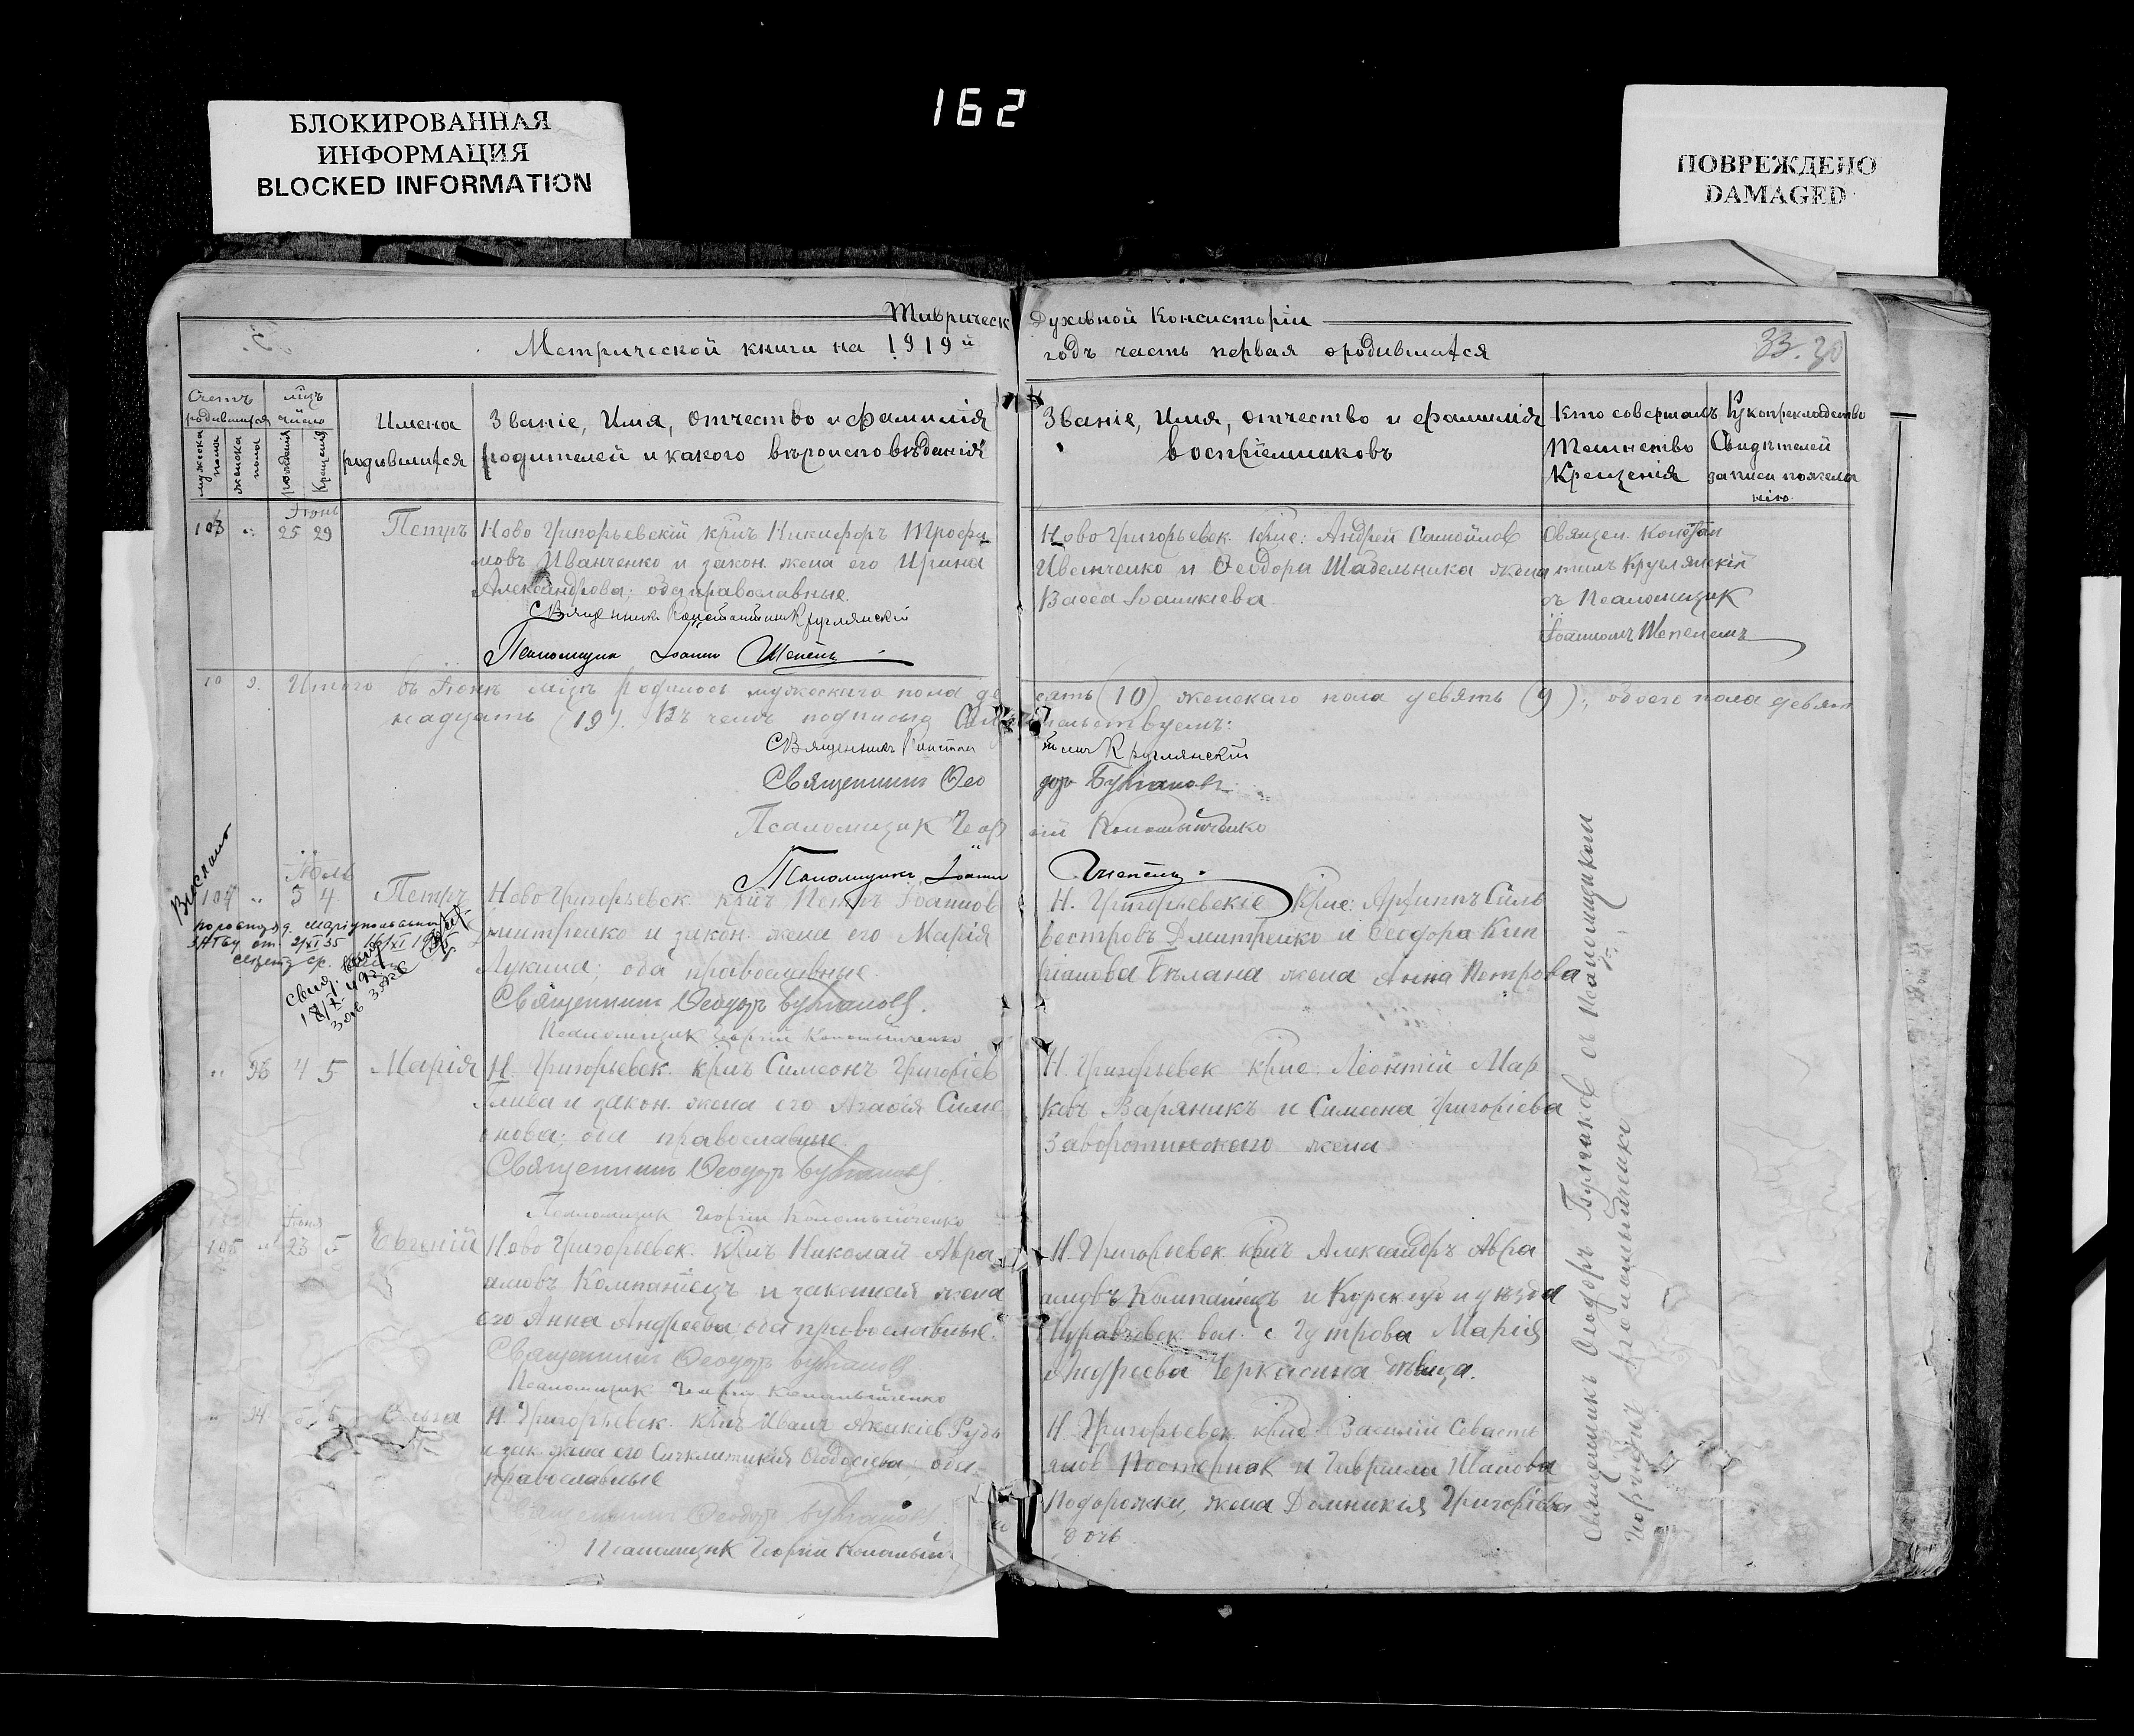 162
БЛОКИРОВАННАЯ
ИНФОРМАЦИЯ
BLOCKED INFORMATION
ПОВРЕЖДЕНО
DAMAGED
Таврическ Духовной Консисторіи
Метрической книги на 1919й годъ часть первая о родившихся
33. 30
Счетъ родившихся
мужска пола
женска пола
число
рожденія
Крещенія
Имена родившихся
Званіе, Имя, отчество и фамилія
родителей и какого вѣроисповѣданія
Званіе, Имя, отчество и фамилія
воспріемниковъ
Кто совершалъ
Таинство
Крещенія
Рукоприкладство
Свидѣтелей
записи по жела
нію
103 25 29 Петръ
Ново Григорьевскій крнъ Никифоръ Трофи
мовъ Иванченко и закон. жена его Ирина
Александрова; оба православные.
Священникъ Константинъ Круглянскій
Псаломщик Іоаннъ Шепель
Ново Григорьевск. крне: Андрей Самойлов
Иванченко и Ѳеодора Шадельника жена
Васса Іоанникіева
Священ. Констан
тинъ Круглянскій
съ Псаломщик
Іоанномъ Шепелемъ
10 9. Итого въ Іюнѣ мцѣ родилось мужескаго пола де сять (10) женскаго пола девять (9); обоего пола девят
надцать (19). Въ чемъ подписью Свидѣтельствуемъ:
Священникъ Констан тинъ Круглянскій
Священникъ Ѳео доръ Булгаковъ
Псаломщик Геор гій Коломыйченко
Псаломщикъ Іоаннъ Шепель
Выслано
Іюль
104 3 4. Петръ
Ново Григорьевск. крнъ Петръ Іоаннов
Дмитренко и закон. жена его Марія
Лукина; оба православные.
Священникъ Ѳеодоръ Булгаковъ.
Псаломщик Георгій Коломыйченко
Н. Григорьевскіе крне: Архипъ Силь
вестровъ Дмитренко и Ѳеодора Кип
ріанова Бѣлана жена Анна Петрова
4 5 Марія
Н. Григорьевск. крнъ Симеонъ Григоріев
и закон. жена его Агафія Симе
онова; оба православные.
Священникъ Ѳеодоръ Булгаковъ.
Псаломщик Георгій Коломыйченко
Н. Григорьевск крне: Леонтій Мар
ковъ Варяникъ и Симеона Григоріева
Заворотинскаго жена
Іюня
105 23 5 Евгеній
Ново Григорьевск. крнъ Николай Авра
амовъ Компаніецъ и законная жена
его Анна Андреева; оба православные.
Священникъ Ѳеодоръ Булгаковъ
Псаломщик Георгій Коломыйченко
Н. Григорьевск крнъ Александръ Авра
амовъ Компаніецъ и Курск губ и уѣзда
вол. с Марія
Андреева Черкасина дѣвица.
34 Ольга
Н. Григорьевск. крнъ Иванъ Акакіев Рудь
и зак. жена его Синклитикія Ѳеодосіева; оба
православные
Священникъ Ѳеодоръ Булгаковъ.
Псаломщик Георгій Коломый
Н. Григорьевск. крне Василій Севасть
янов Постернак и Гавриила Иванова
Подорожки, жена Домникія Григоріева
дочь
Священникъ Ѳеодоръ Булгаковъ съ Псаломщикомъ
Георгіемъ Коломыйченко